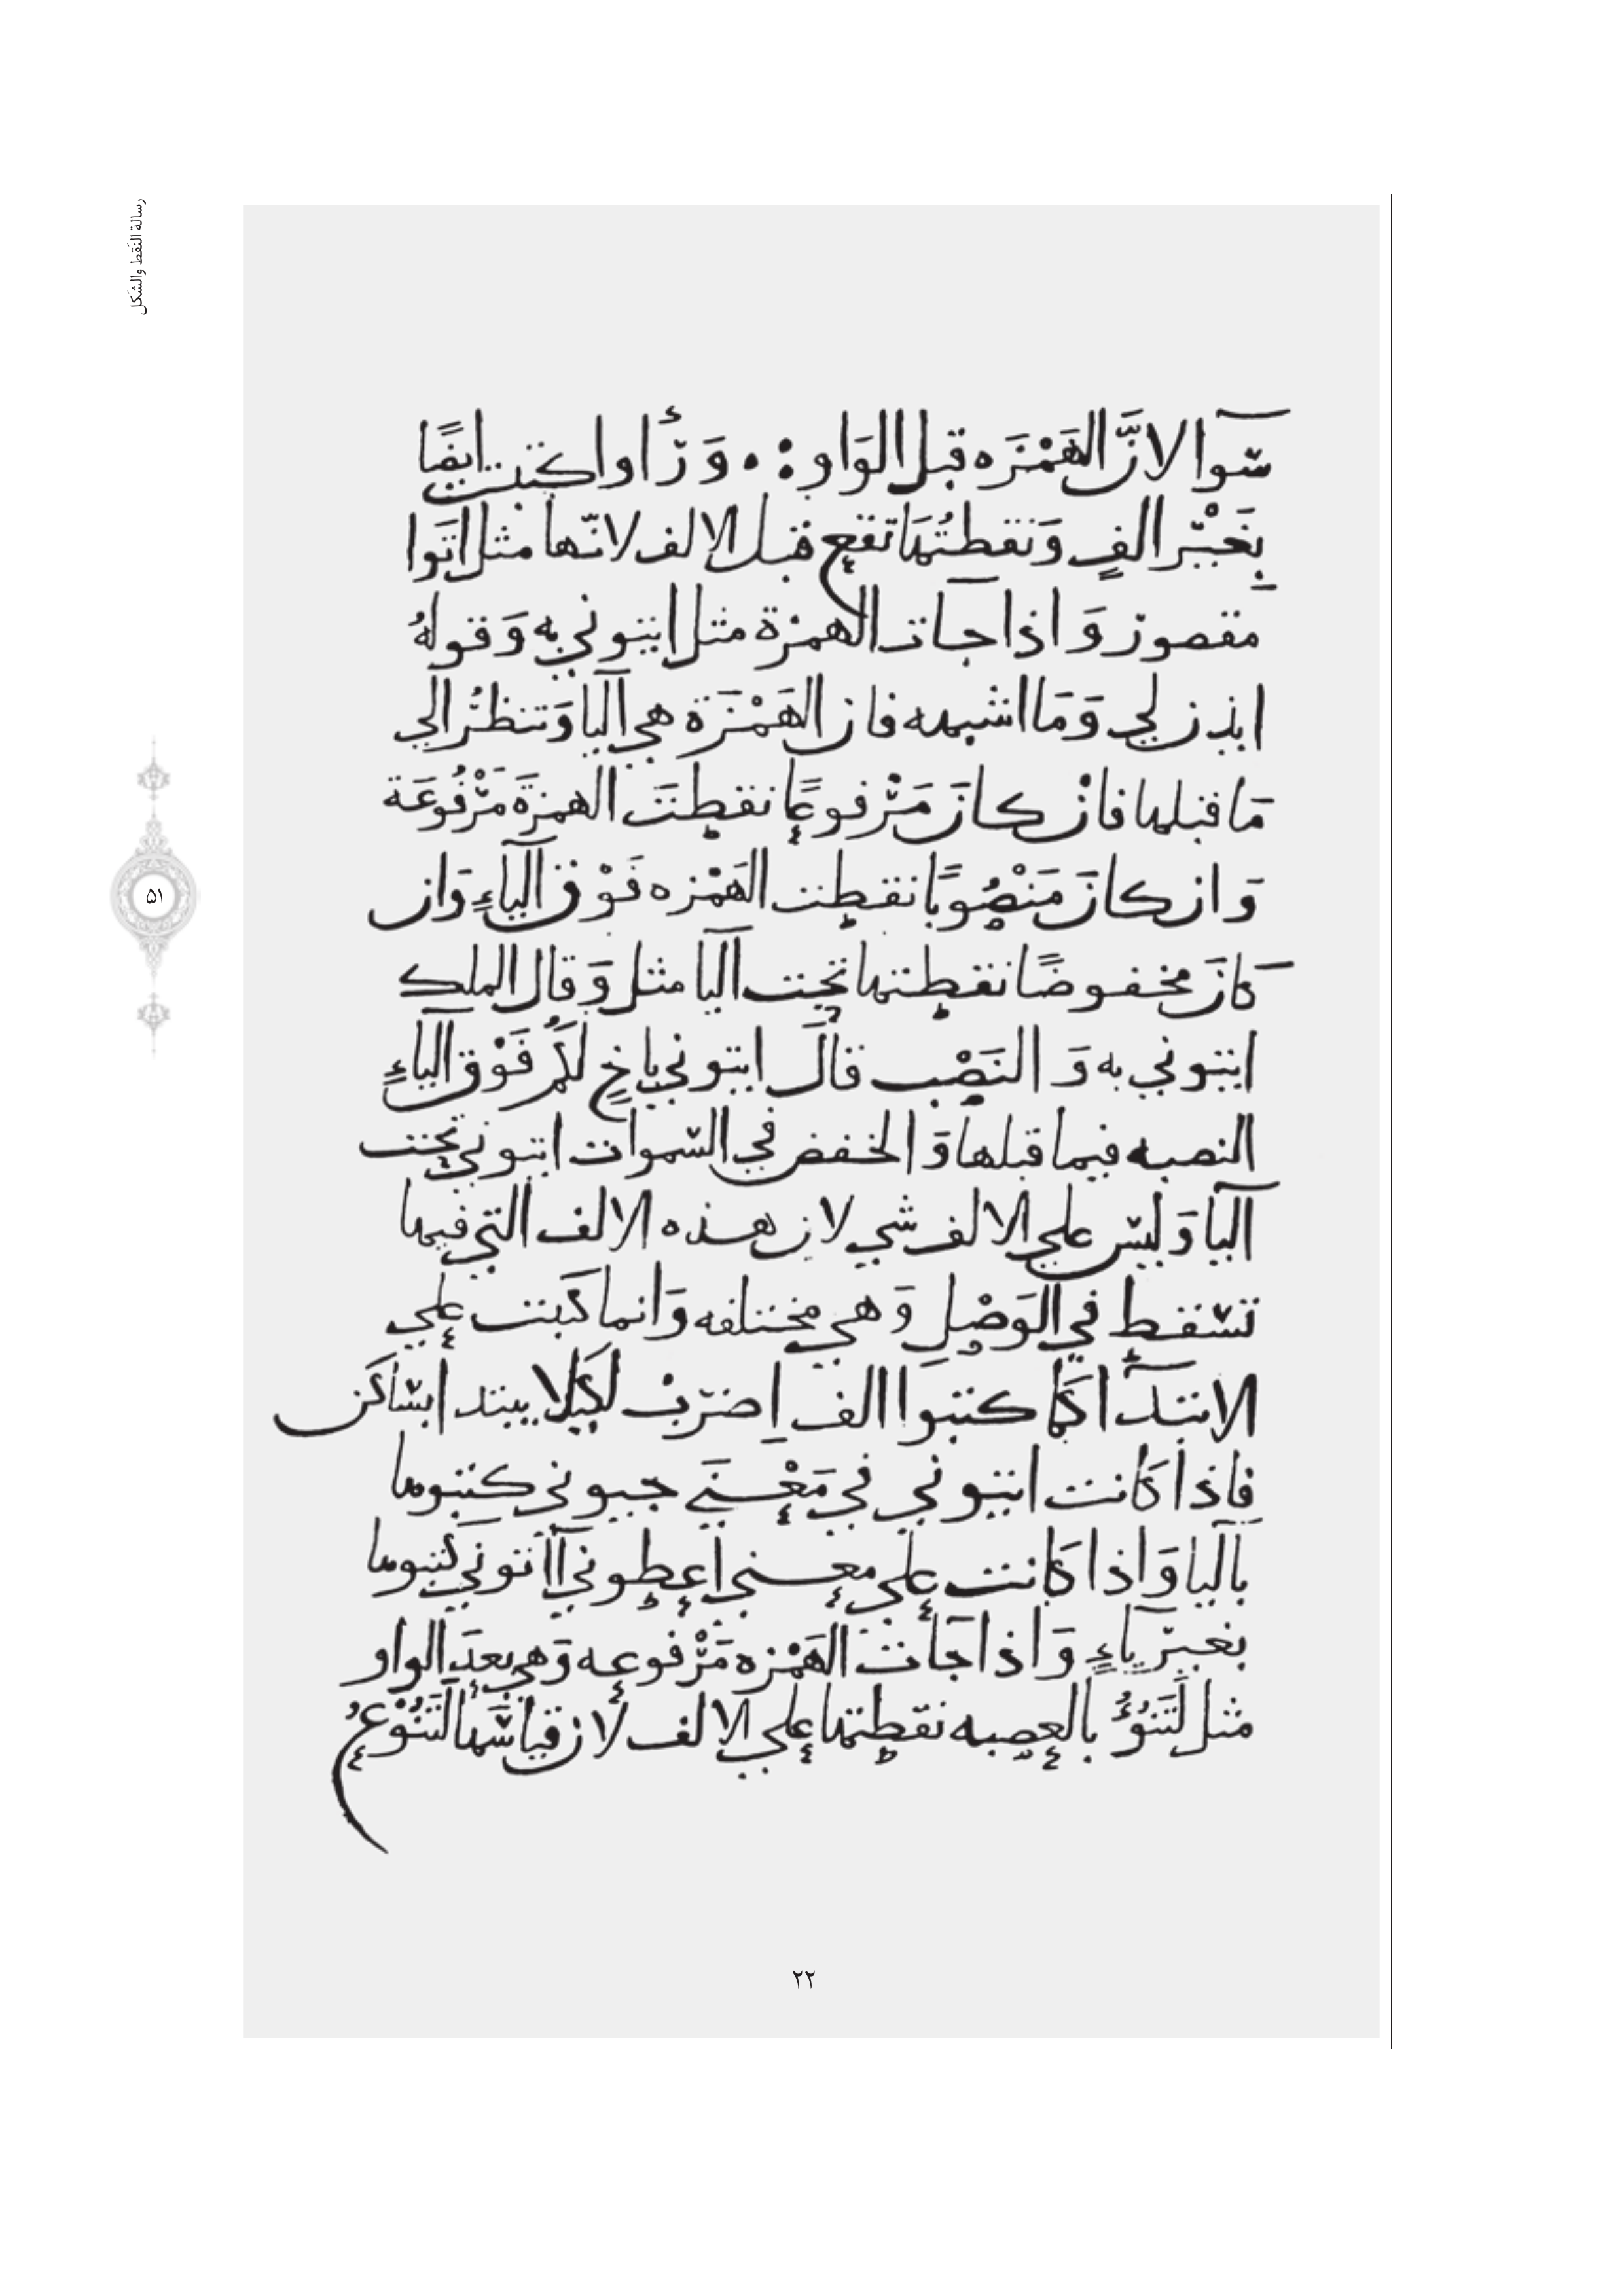 رسالة النقط والشكل
سَوآ لانَّ الهَمْزَه قبل الوَاو وَرَأَ او اكتنت ايضًا
بغَيْر الفٍ وَنقطتُهَا تقع قبل الالف لانّها مثل اتَوا
مقصور وَاذا جآت الهمزة مثل ايتوني به وَقولهُ
ايذن لي وَمَا اشبهه فان الهَمْزَة هي اليآ وَتنظُر الي
مَا قبلها فانْ كانَ مَرْفوعًا نقطتَ الهمزةَ مَرْفُوعَة
وَان كانَ مَنْصُوبًا نقطت الهَمْزه فَوْق اليآءِ وَان
كانَ مخفوضًا نقطتها تحت اليآ مثل وَقال الملك
ايتوني به وَالنَصْب قالَ ايتوني باخٍ لكُم فَوْق اليآءِ
النصبه فيما قبلها وَالخفض في السّموات ايتوني تحت
اليآ وَليس علي الالف شي لان هذه الالف التي فيها
تسقط في الوَصْل وَهي مختلفه وَانما كَتبت علي
الابتدآ كَما كتبوا الف اِضرب لكَيلا يبتدا بسَاكن
فاذا كَانت ايتوني في مَعْنَي جيوني كتبوها
باليآ وَاذا كَانت علي معني اعطوني آتوني كَتبوها
بغير يآءٍ وَاذا جَآت الهَمْزه مَرْفوعه وَهي بعدَ الواو
مثل لَتَنُوْأُ بالعصبه نقطتها علي الالف لان قياسَها لَتَنُوْعُ
٢٢
٥١